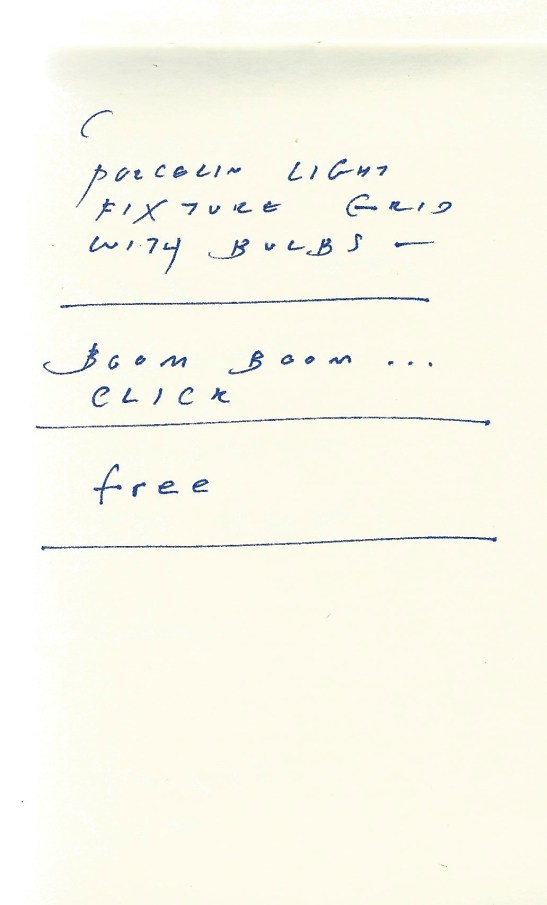 (
PORCELIN LIGHT
FIXTURE GRID
WITH BULBS —
BOOM BOOM ...
CLICK
free